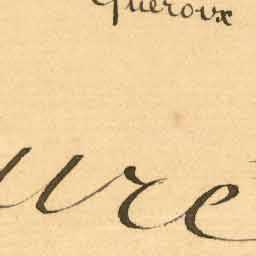 Queroux
ure